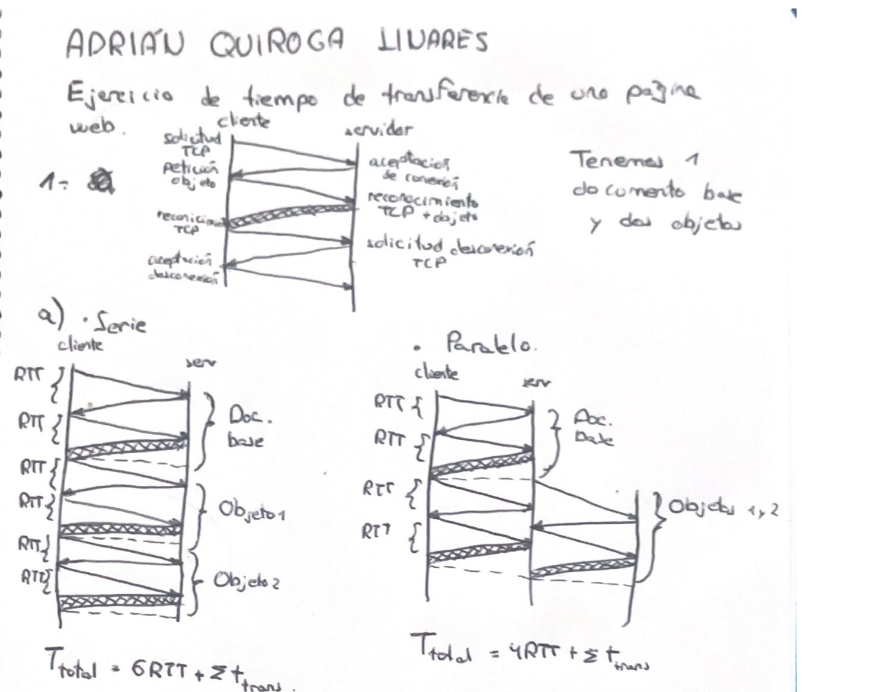 ADRIÁN QUIROGA LINARES
Ejercicio de tiempo de transferencia de una pagina
web.
cliente
servidor
solicitud
TCP
petición
objeto
reconicim
TCP
aceptación
desconexión
aceptacion
de conexión
reconocimiento
TCP + objeto
solicitud desconexión
TCP
1-
Tenemos 1
documento base
y dos objetos
a) • Serie
cliente
serv
RTT
RTT
RTT
RTT
RTT
RTT
Doc.
base
Objeto 1
Objeto 2
T total = 6RTT + Σ t trans.
• Paralelo.
cliente
serv
RTT
RTT
RTT
RTT
Doc.
base
Objetos 1 y 2
T total = 4RTT + Σ t trans